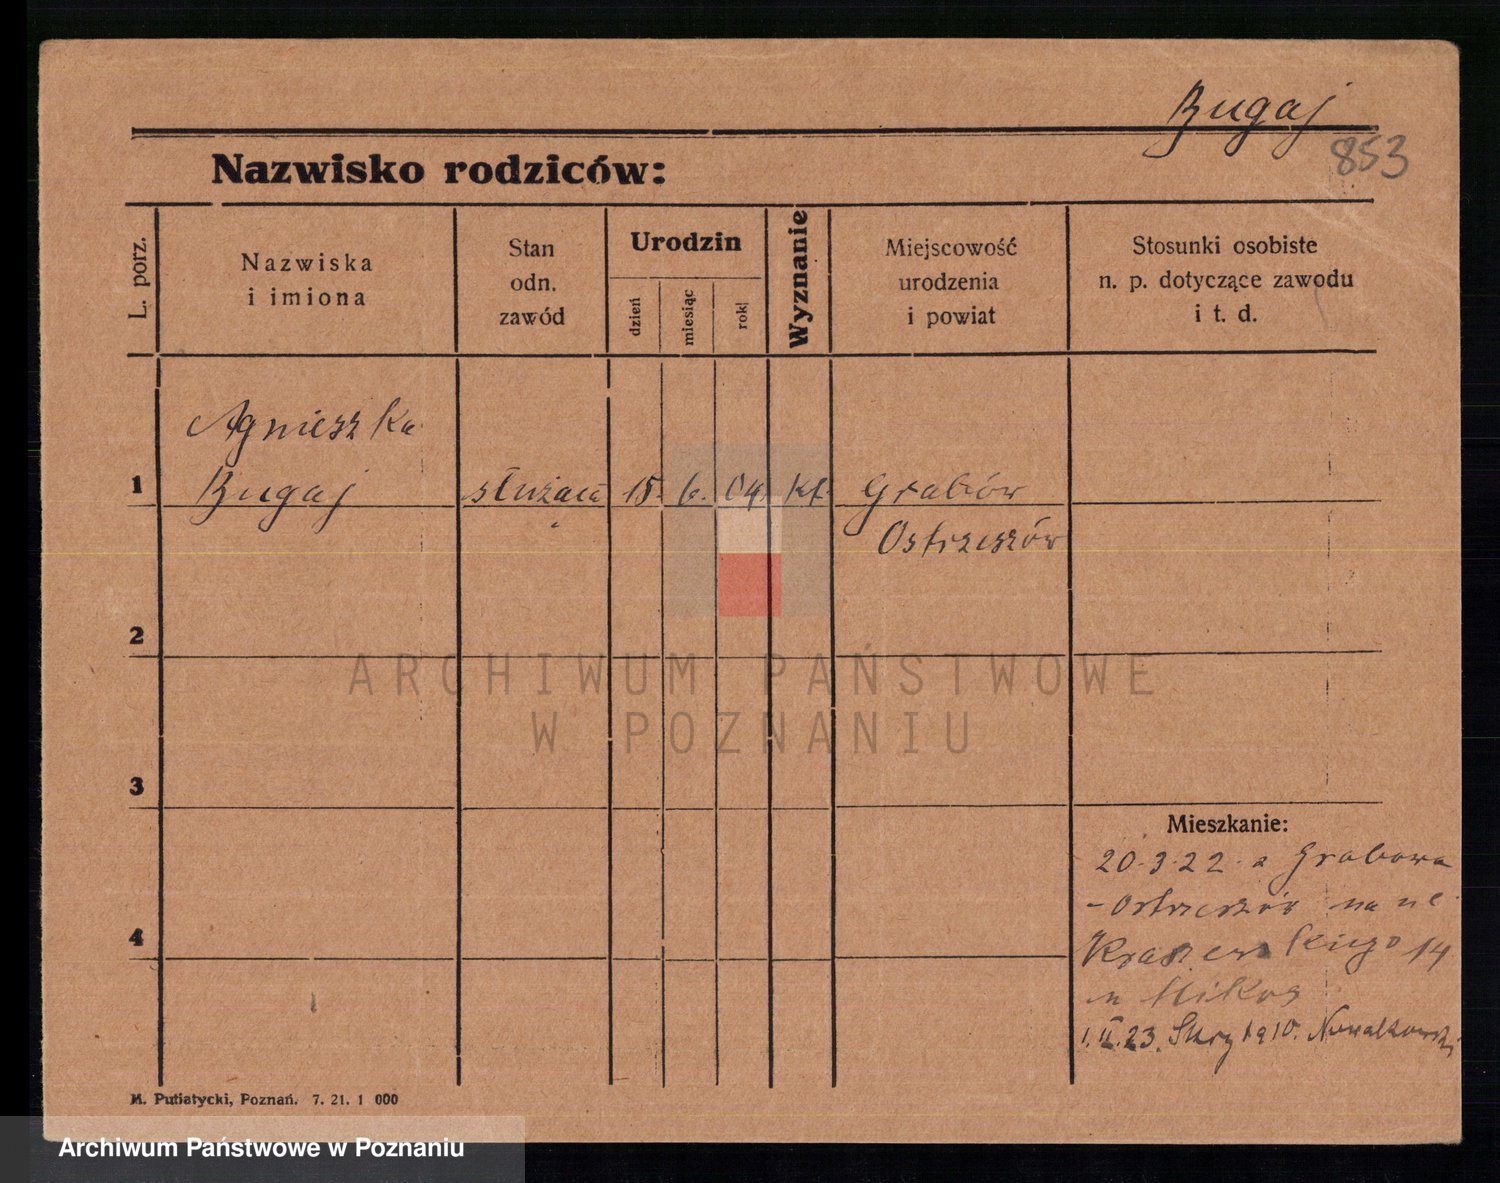 Bugaj
853
Nazwisko rodziców:
L. porz.
Nazwiska
i imiona
Stan
odn.
zawód
Urodzin
dzień
miesiąc
rok
Wyznanie
Miejscowość
urodzenia
i powiat
Stosunki osobiste
n. p. dotyczące zawodu
i t. d.
Agnieszka
1 Bugaj służąca 15. 6. 04. kt. Grabów
Ostrzeszów
2
3
4
ARCHIWUM PAŃSTWOWE
W POZNANIU
Mieszkanie:
20.3.22 z Grabowa
- Ostrzeszów na ul.
Kraszewskiego 14
u Mikos
1.II.23. 10. Nowakowski
M. Putiatycki, Poznań. 7. 21. 1 000
Archiwum Państwowe w Poznaniu